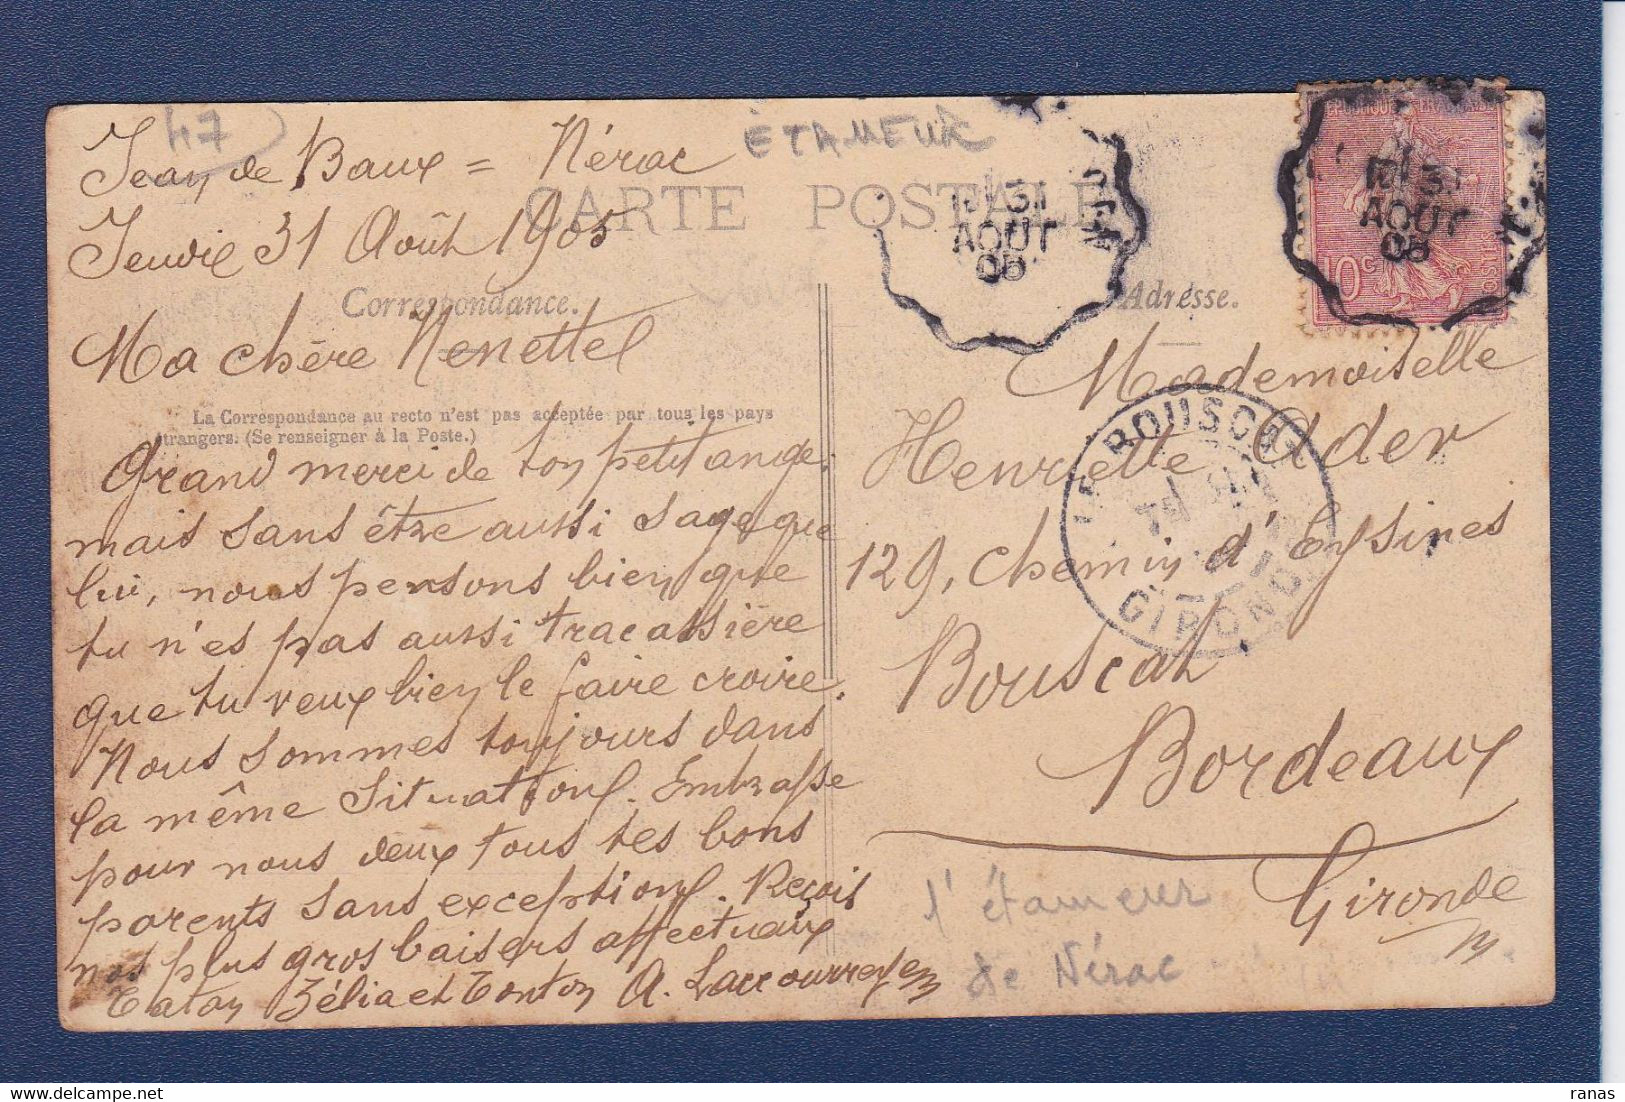 47
ÉTAMEUR
Jean de Baux = Nérac
Jeudi 31 Août 1905
CARTE POSTALE
Correspondance.
Adresse.
Ma chère Nenette
La Correspondance au recto n'est pas acceptée par tous les pays
étrangers. (Se renseigner à la Poste.)
Grand merci de ton petit ange.
mais sans être aussi sage que
lui, nous pensons bien que
tu n'es pas aussi tracassière
que tu veux bien le faire croire.
Nous sommes toujours dans
la même situation. Embrasse
pour nous deux tous tes bons
parents sans exception. Reçois
nos plus gros baisers affectueux
Tatan Zélia et Tonton A.
31
AOUT
05
REPUBLIQUE FRANÇAISE
POSTES
10c
31
AOUT
05
Mademoiselle
Henriette Ader
129, Chemin d'Eysines
Bouscat
Bordeaux
Gironde
LE BOUSCAT
GIRONDE
l'étameur
de Nérac
ranas